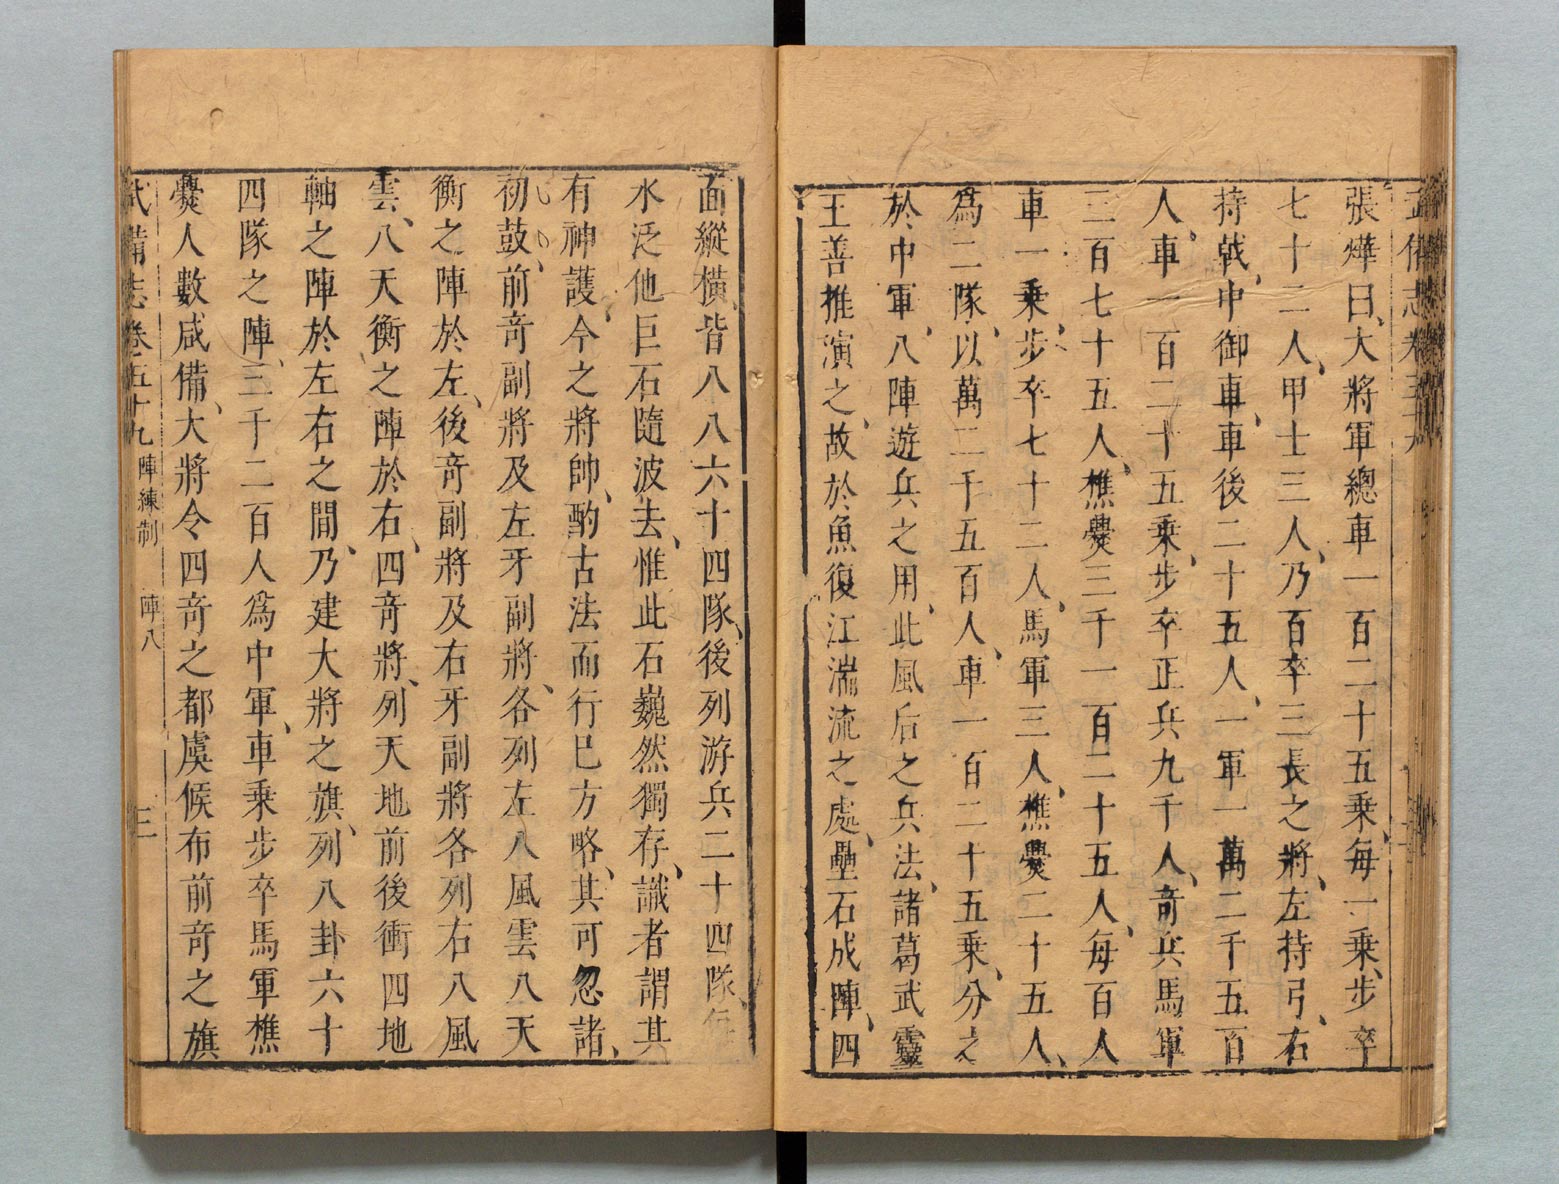 武備志卷五十九
張燁曰、大將軍總車一百二十五乘、每一乘、步卒
七十二人、甲士三人、乃百卒三長之將、左持弓、右
持戟、中御車、車後二十五人、一軍一萬二千五百
人、車一百二十五乘、步卒正兵九千人、奇兵馬軍
三百七十五人、樵爨三千一百二十五人、每百人
車一乘、步卒七十二人、馬軍三人、樵爨二十五人、
爲二隊、以萬二千五百人、車一百二十五乘、分之
於中軍、八陣遊兵之用、此風后之兵法、諸葛武靈
王善推演之、故於魚復江湍流之處、壘石成陣、四
面縱橫、皆八八六十四隊、後列游兵二十四隊、
水泛他巨石隨波去、惟此石巍然獨存、識者謂其
有神護、今之將帥、酌古法而行巳方略、其可忽諸、
初鼓、前竒副將及左牙副將、各列左八風雲八天
衡之陣於左、後竒副將及右牙副將各列右八風
雲、八天衡之陣於右、四竒將、列天地前後衝四地
軸之陣於左右之間、乃建大將之旗、列八卦六十
四隊之陣、三千二百人爲中軍、車乘步卒馬軍樵
爨人數咸備、大將令四竒之都虞候布前竒之旗
武備志卷五十九 陣練制 陣八 三